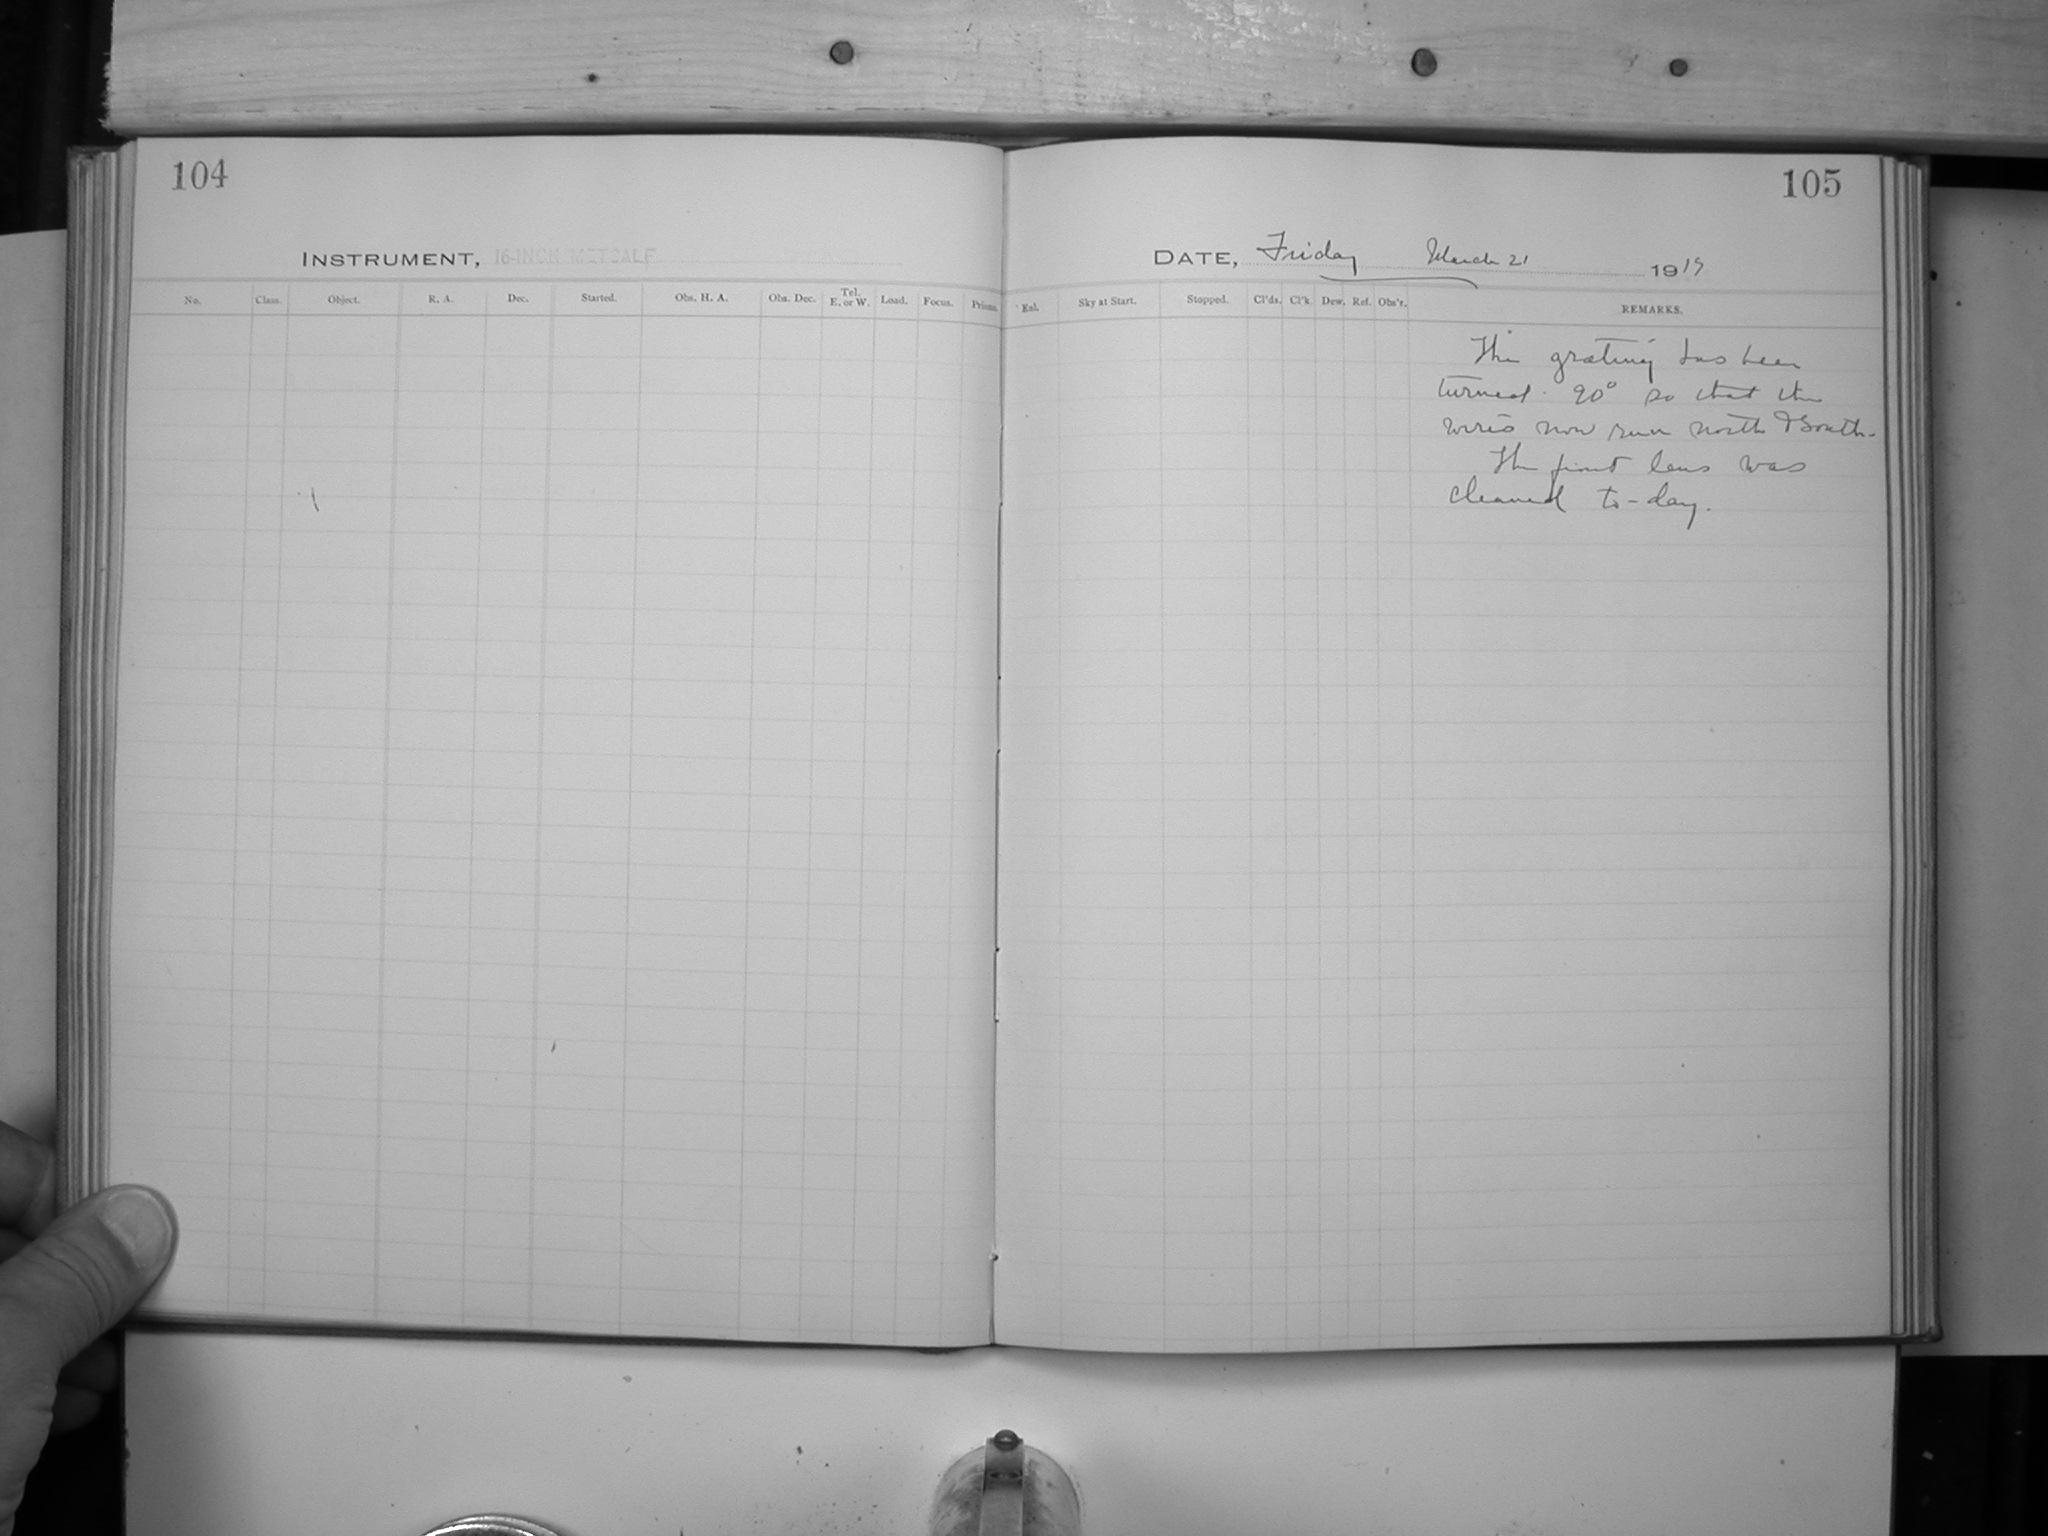 104
INSTRUMENT, 16-INCH METCALF
No. Class. Object. R. A. Dec. Started. Obs. H. A. Obs. Dec. Tel. E. or W. Load. Focus. Prisms.
105
DATE, Friday March 21 1919
Enl. Sky at Start. Stopped. Cl'ds. Cl'k. Dew. Ref. Obs'r. REMARKS.
The grating has been
turned 90° so that the
wires now run north & South.
The front lens was
cleaned to-day.